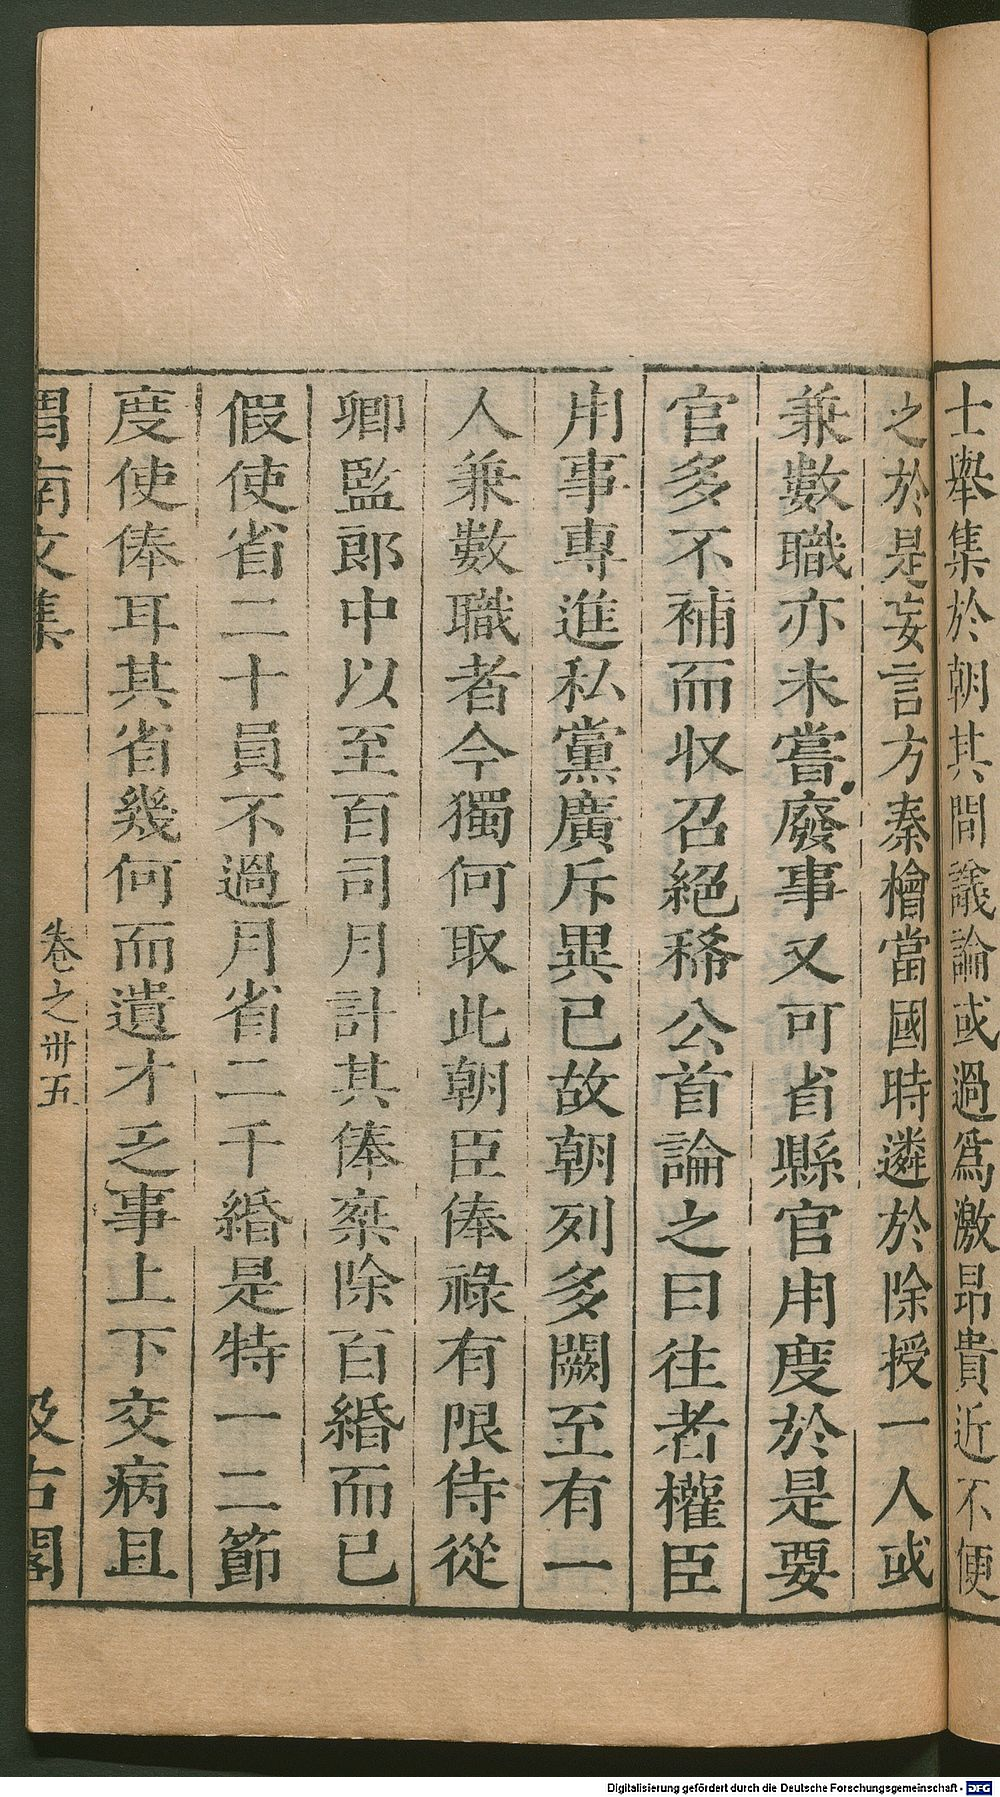 士舉集於朝其間議論或過爲激昂貴近不便
之於是妄言方秦檜當國時遴於除授一人或
兼數職亦未嘗廢事又可省縣官用度於是要
官多不補而收召絕稀公首論之曰往者權臣
用事專進私黨廣斥異已故朝列多闕至有一
人兼數職者今獨何取此朝臣俸祿有限侍從
卿監郎中以至百司月計其俸棊除百緡而已
假使省二十員不過月省二千緡是特一二節
度使俸耳其省幾何而遺才乏事上下交病且
渭南文集
卷之卅五
汲古閣
Digitalisierung gefördert durch die Deutsche Forschungsgemeinschaft - DFG